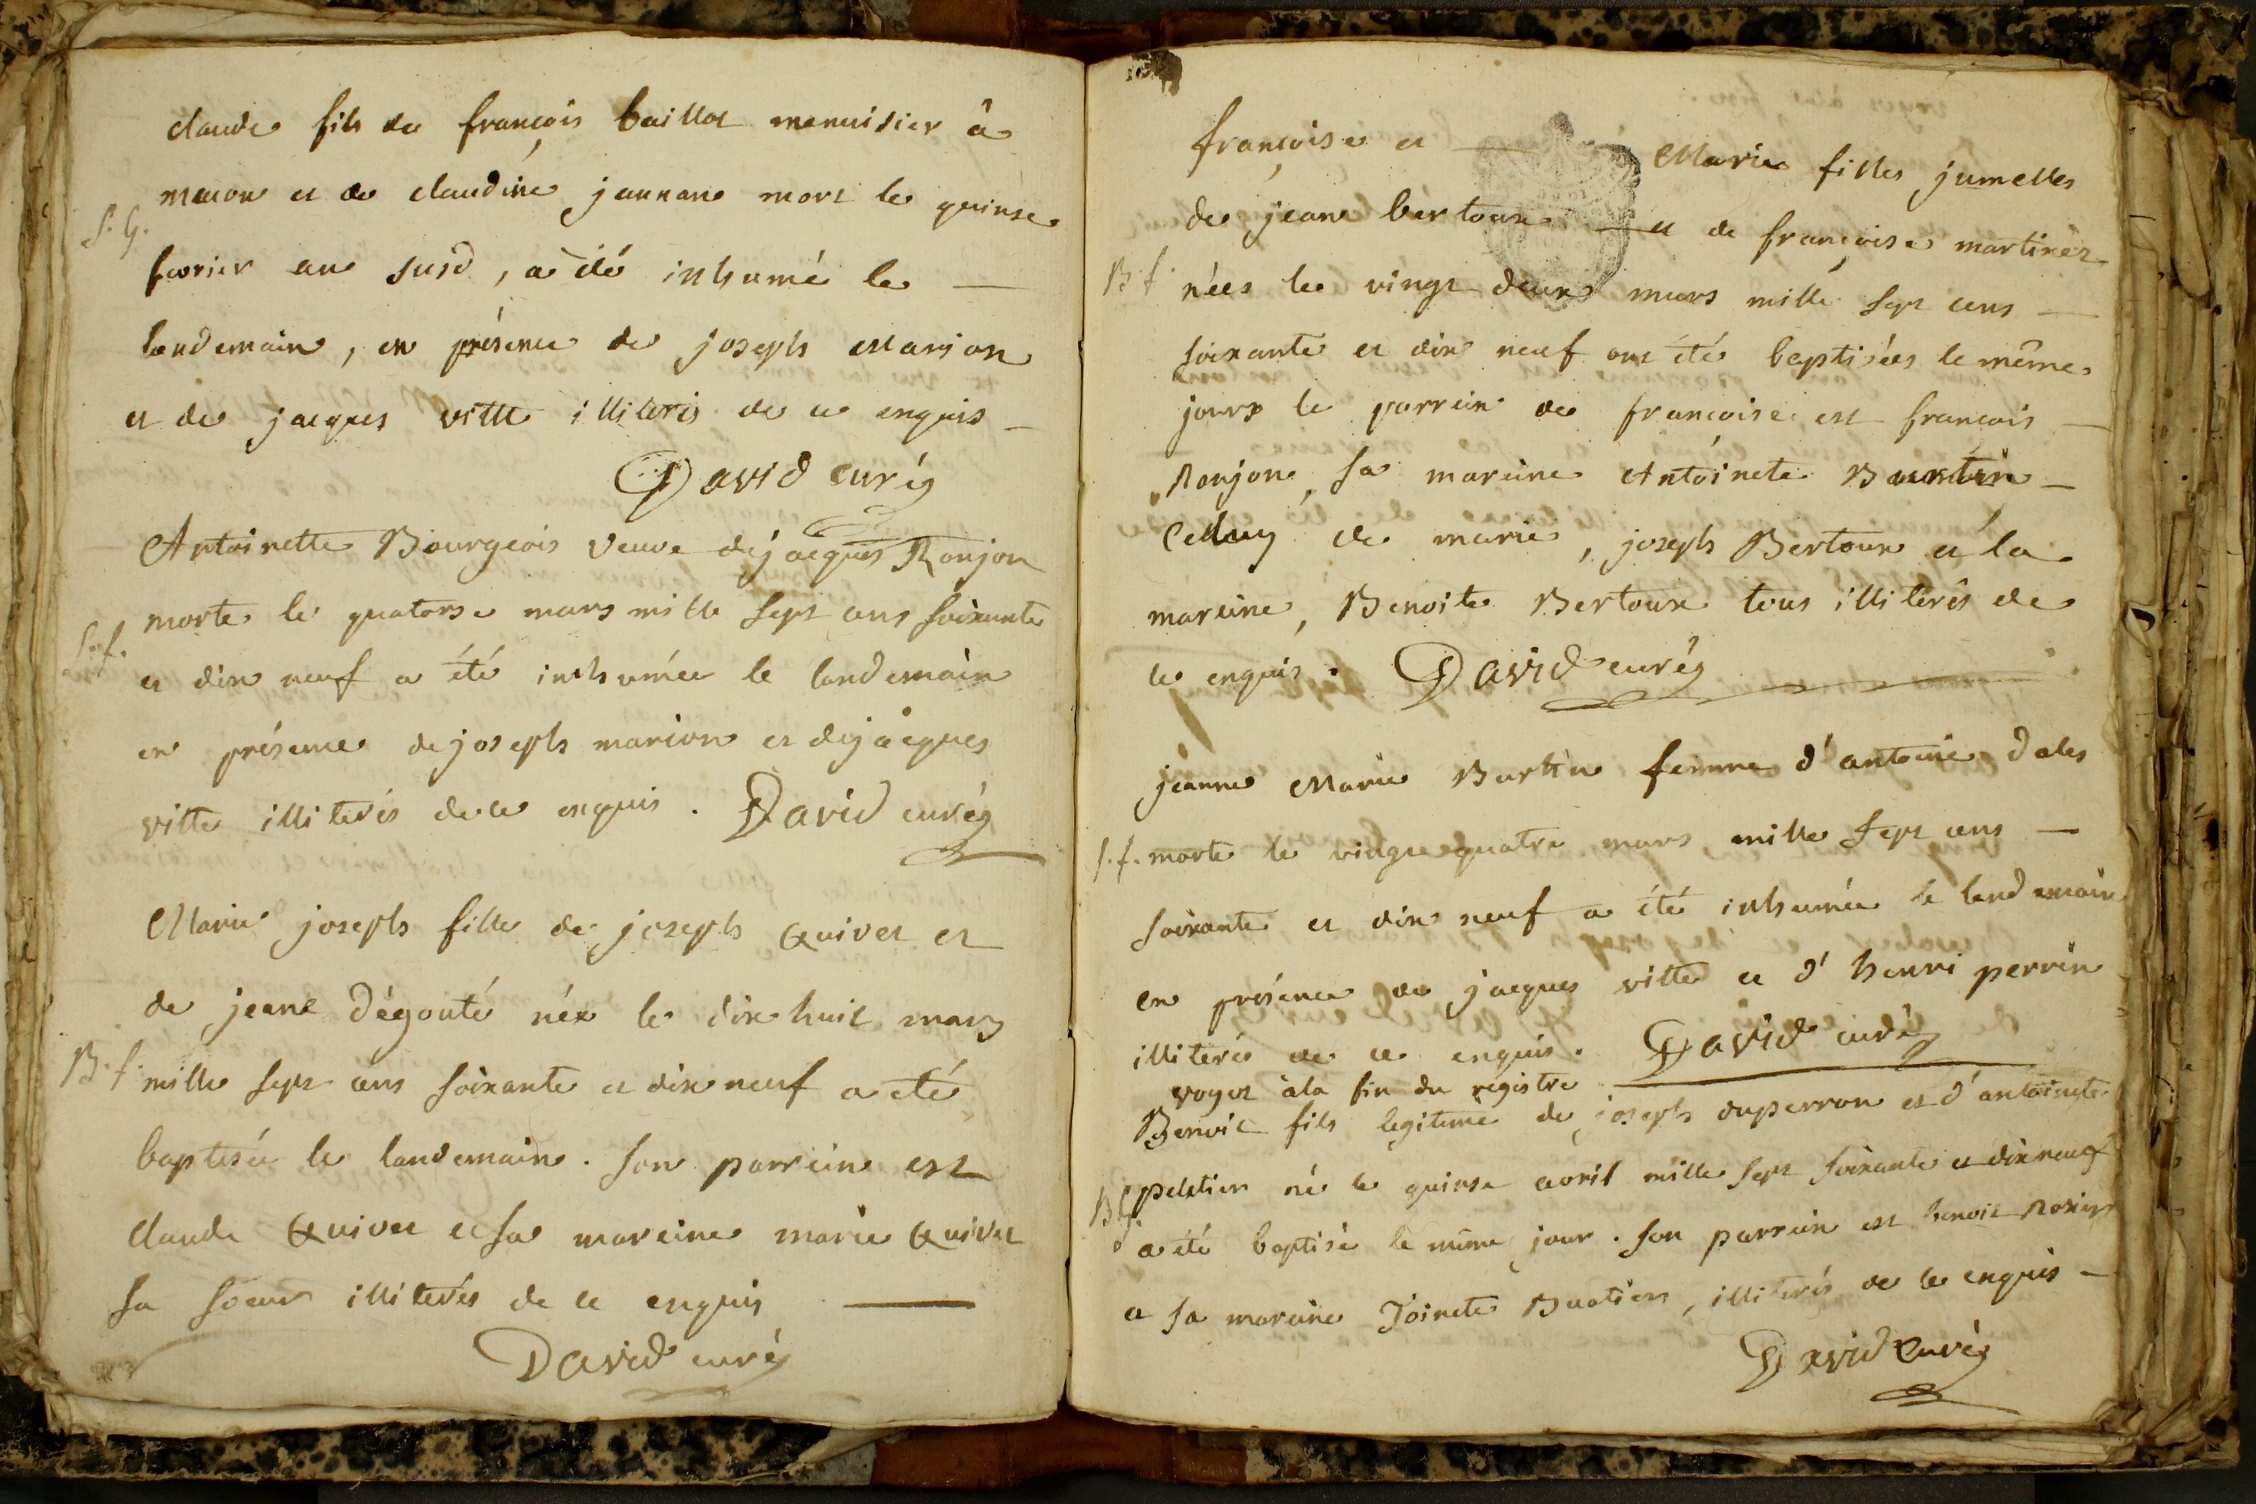 claude fils de françois baillot menuisier à
macon et de claudine jannane mort le quinse
S. G.
fevrier an susd, a été inhumé le —
landemain, en présence de joseph marion
et de jacques vitte illiterés de ce enquis —
David curé
Antoinette Bourgeois veuve de jacques Ronjon
morte le quatorse mars mille sept cens soixante
S. f.
et dix neuf a été inhumée le landemain
en présence de joseph marion et de jacques
vitte illiterés de ce enquis. David curé
Marie joseph fille de joseph Quivet et
de jeane dégouté née le dix huit mars
B. f. mille sept cens soixante et dix neuf a été
baptisée le landemain. son parrein est
claude Quivet et sa mareine marie Quivet
sa soeur illiterés de ce enquis —
David curé
françoise et — Marie filles jumelles
de jean bertoux — et de françoise martinet
B. f. nées le vingt deux mars mille sept cens —
soixante et dix neuf ont été baptisées le même
jours le parrein de françoise est françois —
Ronjon, sa mareine Antoinete —
Celluy de marie, joseph Bertoux et la
mareine, Benoite Bertoux tous illiterés de
ce enquis. David curé
jeanne Marie Burtin femme d'antoine dales
S. f. morte le vingt quatre mars mille sept cens —
soixante et dix neuf a été inhumée le landemain
en présence de jacques vitte et d'henri perrin
illiterés de ce enquis. David curé
voyez à la fin du registre
Benoit fils legitime de joseph duperron et d'antoinete
B. G. peletier né le quinse avril mille sept soixante et dix neuf
a été baptisé le même jour. son parrein est benoit
et sa mareine Toinete Buatier, illiterés de ce enquis —
David Curé